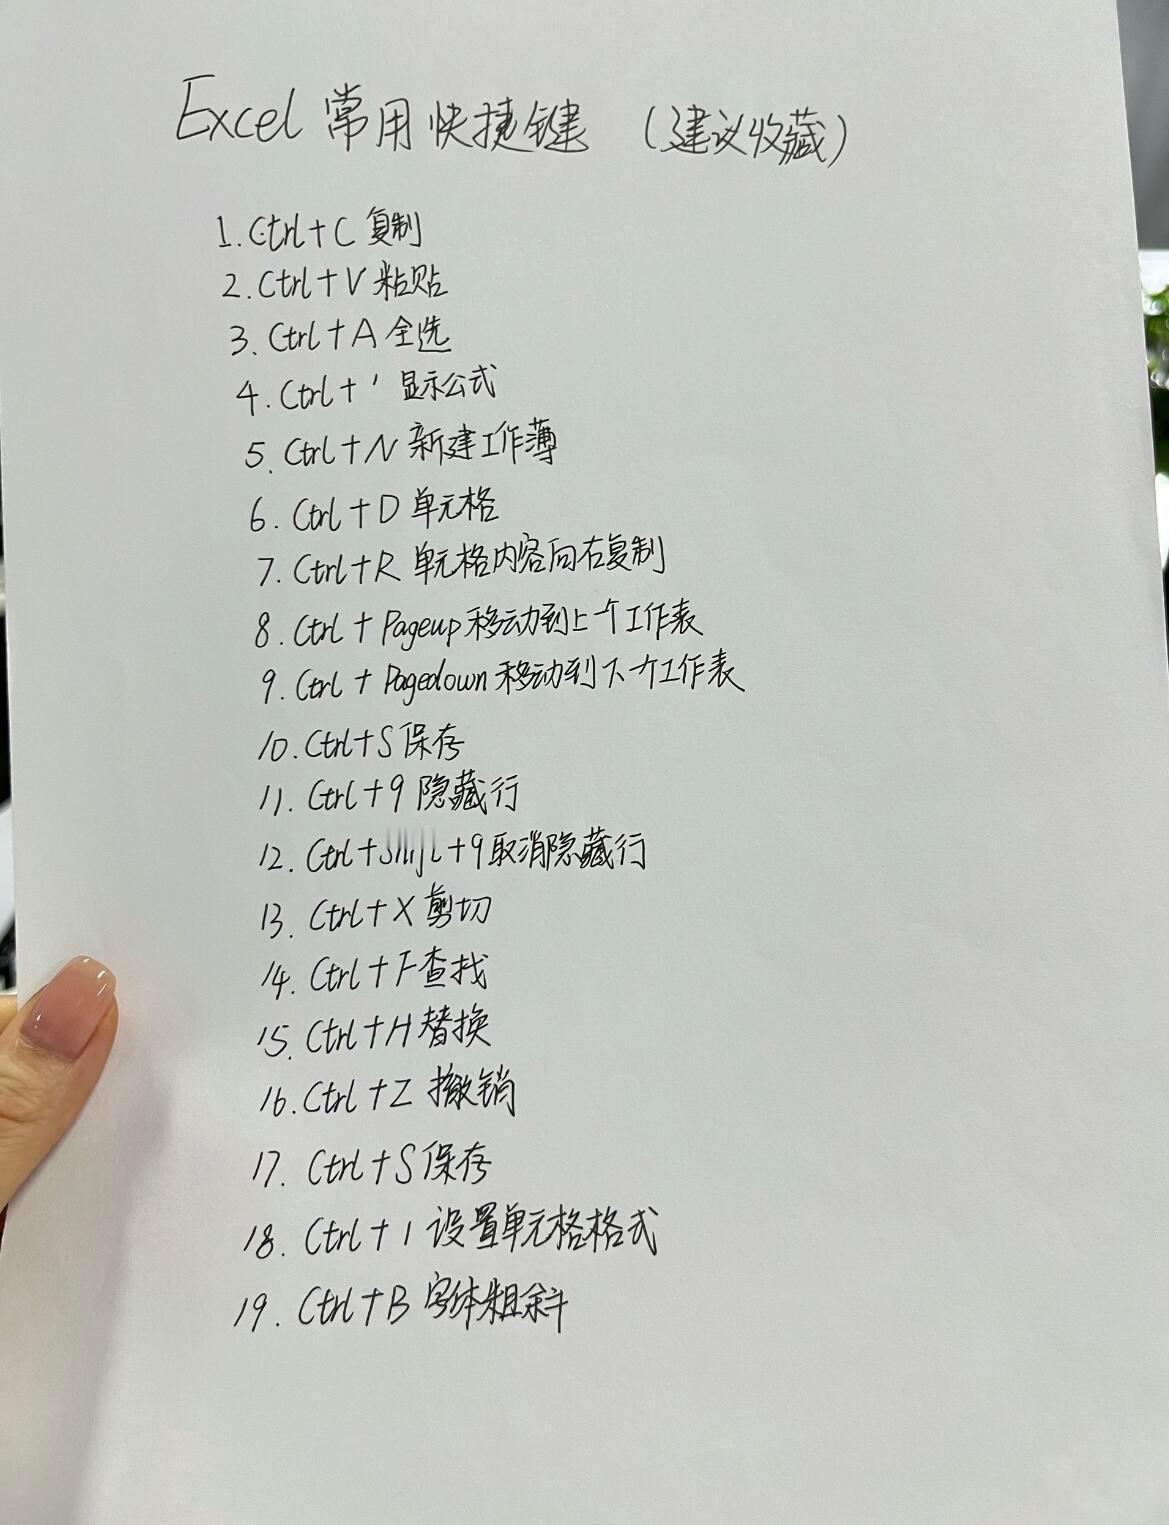 Excel 常用快捷键 （建议收藏）
1. Ctrl+C 复制
2. Ctrl+V 粘贴
3. Ctrl+A 全选
4. Ctrl+' 显示公式
5. Ctrl+N 新建工作薄
6. Ctrl+D 单元格
7. Ctrl+R 单元格内容向右复制
8. Ctrl+Pageup 移动到上个工作表
9. Ctrl+Pagedown 移动到下个工作表
10. Ctrl+S 保存
11. Ctrl+9 隐藏行
12. Ctrl+Shift+9 取消隐藏行
13. Ctrl+X 剪切
14. Ctrl+F 查找
15. Ctrl+H 替换
16. Ctrl+Z 撤销
17. Ctrl+S 保存
18. Ctrl+1 设置单元格格式
19. Ctrl+B 字体粗斜